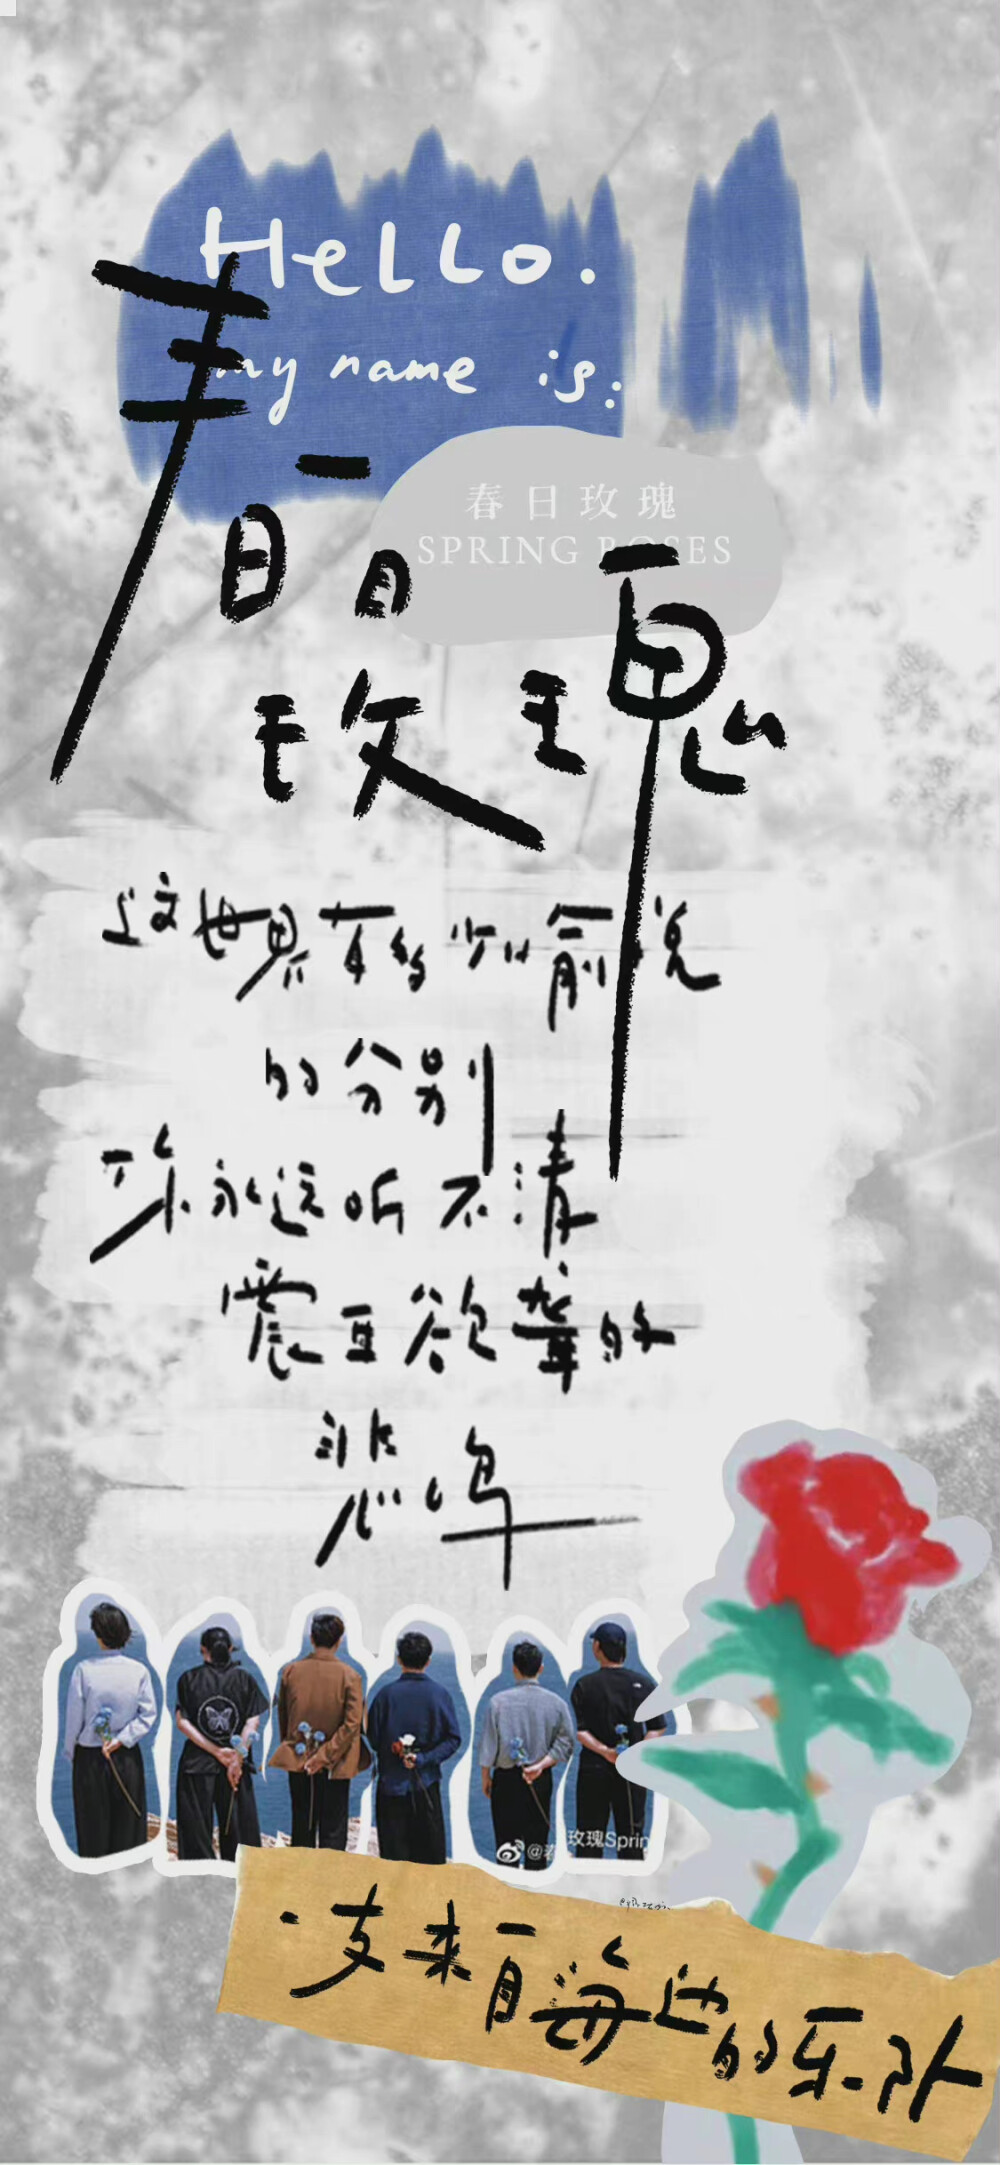 Hello.
my name is:
春日玫瑰
SPRING ROSES
春日
玫瑰
这世界有多少假说
的分别
你永远听不清
震耳欲聋的
悲鸣
玫瑰Sprin
一支来自海边的乐队